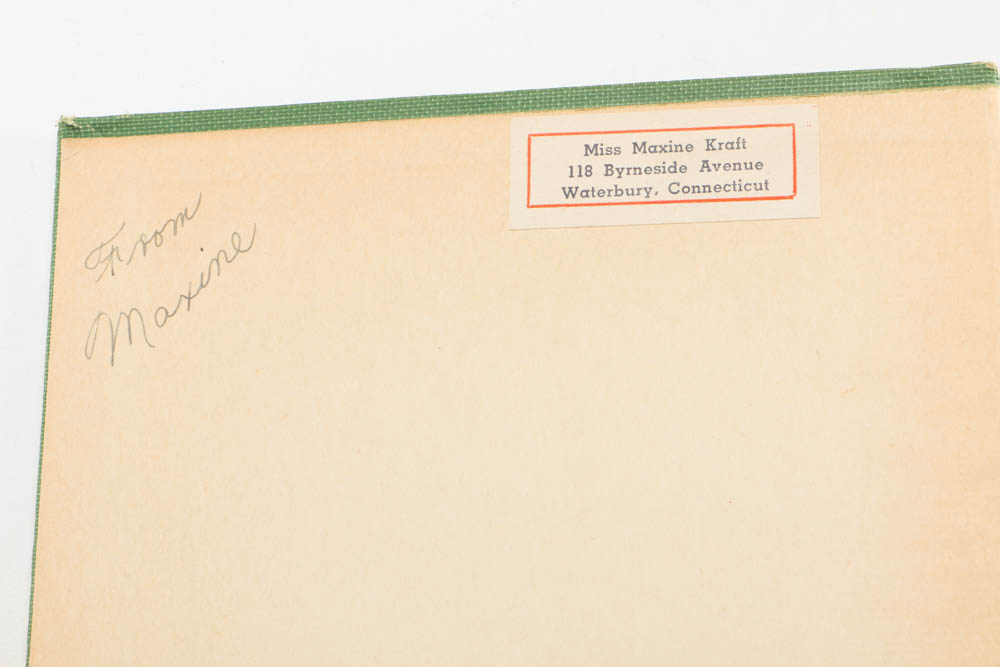 From
Maxine
Miss Maxine Kraft
118 Byrneside Avenue
Waterbury, Connecticut